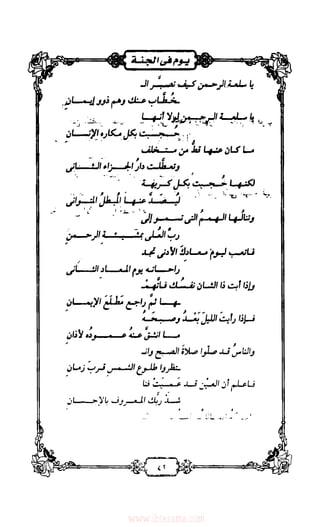 يوم فى الجنة
يا سلعة الرحمن كيف تصبر الـ
خطاب عنك وهم ذوو إيمـان
يا سلعة الرحمن لولا أنهـا
حجبت بكل مكاره الإنسـان
ما كان عنها قط من متخلف
وتعطلت دار الجـزاء الثـانى
لكنها حجبت بكل كريهة
ليصد عنها المبطل المتوانى
وتنالها الهمم التى تسمو إلى
رب العلى بمشيئة الرحمن
فاتعب ليوم معادك الأدنى تجد
راحـاته يوم المعـاد الثـانى
وإذا أبت ذا الشان نفسك فاتهمـ
ـها ثم راجع مطلع الإيمـان
فإذا رأيت الليل بعد وصبحه
ما انشق عنه عموده لأذان
والناس قد صلوا صلاة الصبح وانـ
ـتظروا طلوع الشمس قرب زمان
فاعلم أن العين قد عميت فنا
شد ربك المعروف بالإحسان
٧٢
www.ibtesama.com